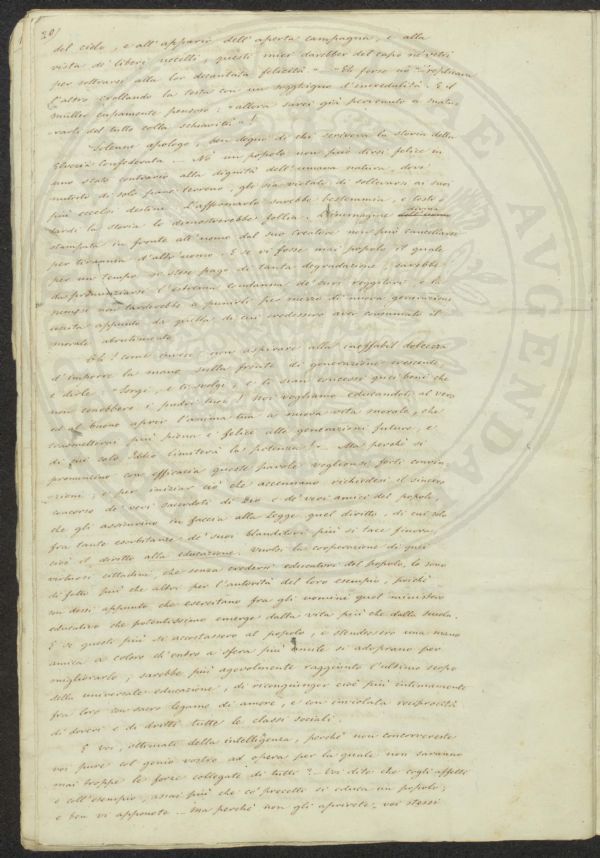 20)
del cielo, e all'apparir dell'aperta campagna, e alla
vista de' liberi uccelli, questi miei darebber del capo ne' vetri
per sottrarsi alla lor decantata felicità." — "Eh forse no" replicava
l'altro crollando la testa con un sogghigno d'incredulità. E il
muller cupamente pensoso: "allora sarei già pervenuto a
del tutto colla schiavitù"!
Solenne apologo, ben degno di chi scriveva la storia della
Elvezia Confederata — No un popolo non può dirsi felice in
uno stato contrario alla dignità dell'umana natura, dove
nutrito di solo pane terreno, gli sia vietato di sollevarsi ai suoi
più eccelsi destini. L'affermarlo sarebbe bestemmia, e tosto o
tardi la storia lo dimostrerebbe follia. L'immagine divina
stampata in fronte all'uomo dal suo creatore non può cancellarsi
per tirannia d'altr'uomo. E se vi fosse mai popolo il quale
per un tempo si stesse pago di tanta degradazione, sarebbe
da pronunziarsi l'estrema condanna de' suoi reggitori, e la
non tarderebbe a punirli per mezzo di nuova generazione
uscita appunto da quella di cui credessero aver consumato il
morale abrutimento.
Oh! come invece non aspirare alla ineffabil dolcezza
d'imporre la mano sulla fronte di generazione crescente,
e dirle "Sorgi, e ti svolgi, e ti sian concessi quei beni che
non conobbero i padri tuoi! Noi vogliamo educandoti al vero
ed al buono aprir l'anima tua a nuova vita morale, che
trasmetterai più piena e felice alle generazioni future, e
di cui solo Iddio limiterà la potenza"! — Ma perchè si
pronunzino con efficacia queste parole voglionsi forti convin-
zioni; e per iniziar ciò che accennano richiedesi il sincero
concorso de' veri sacerdoti di Dio e de' veri amici del popolo,
che gli assicurino in faccia alla legge quel diritto, di cui solo
fra tante esorbitanze de' suoi blanditori più si tace finora,
cioè il diritto alla educazione. Vuolsi la cooperazione di quei
virtuosi cittadini, che senza credersi educatori del popolo, lo sono
di fatto più che altri per l'autorità del loro esempio, poichè
son dessi appunto che esercitano fra gli uomini quel ministero
educativo che potentissimo emerge dalla vita più che dalla scuola.
E se questi più si accostassero al popolo, e stendessero una mano
amica a coloro ch'entro a sfera più umile si adoprano per
migliorarlo, sarebbe più agevolmente raggiunto l'ultimo scopo
della universale educazione, di ricongiunger cioè più intimamente
fra loro con sacro legame di amore, e con inviolata reciprocità
di doveri e di diritti tutte le classi sociali.
E voi, ottimati della intelligenza, perchè non concorrereste
voi pure col genio vostro ad opera per la quale non saranno
mai troppe le forze collegate di tutti? Voi dite che cogli affetti
e coll'esempio, assai più che co' precetti si educa un popolo;
e ben vi apponete — ma perchè non gli aprirete voi stessi